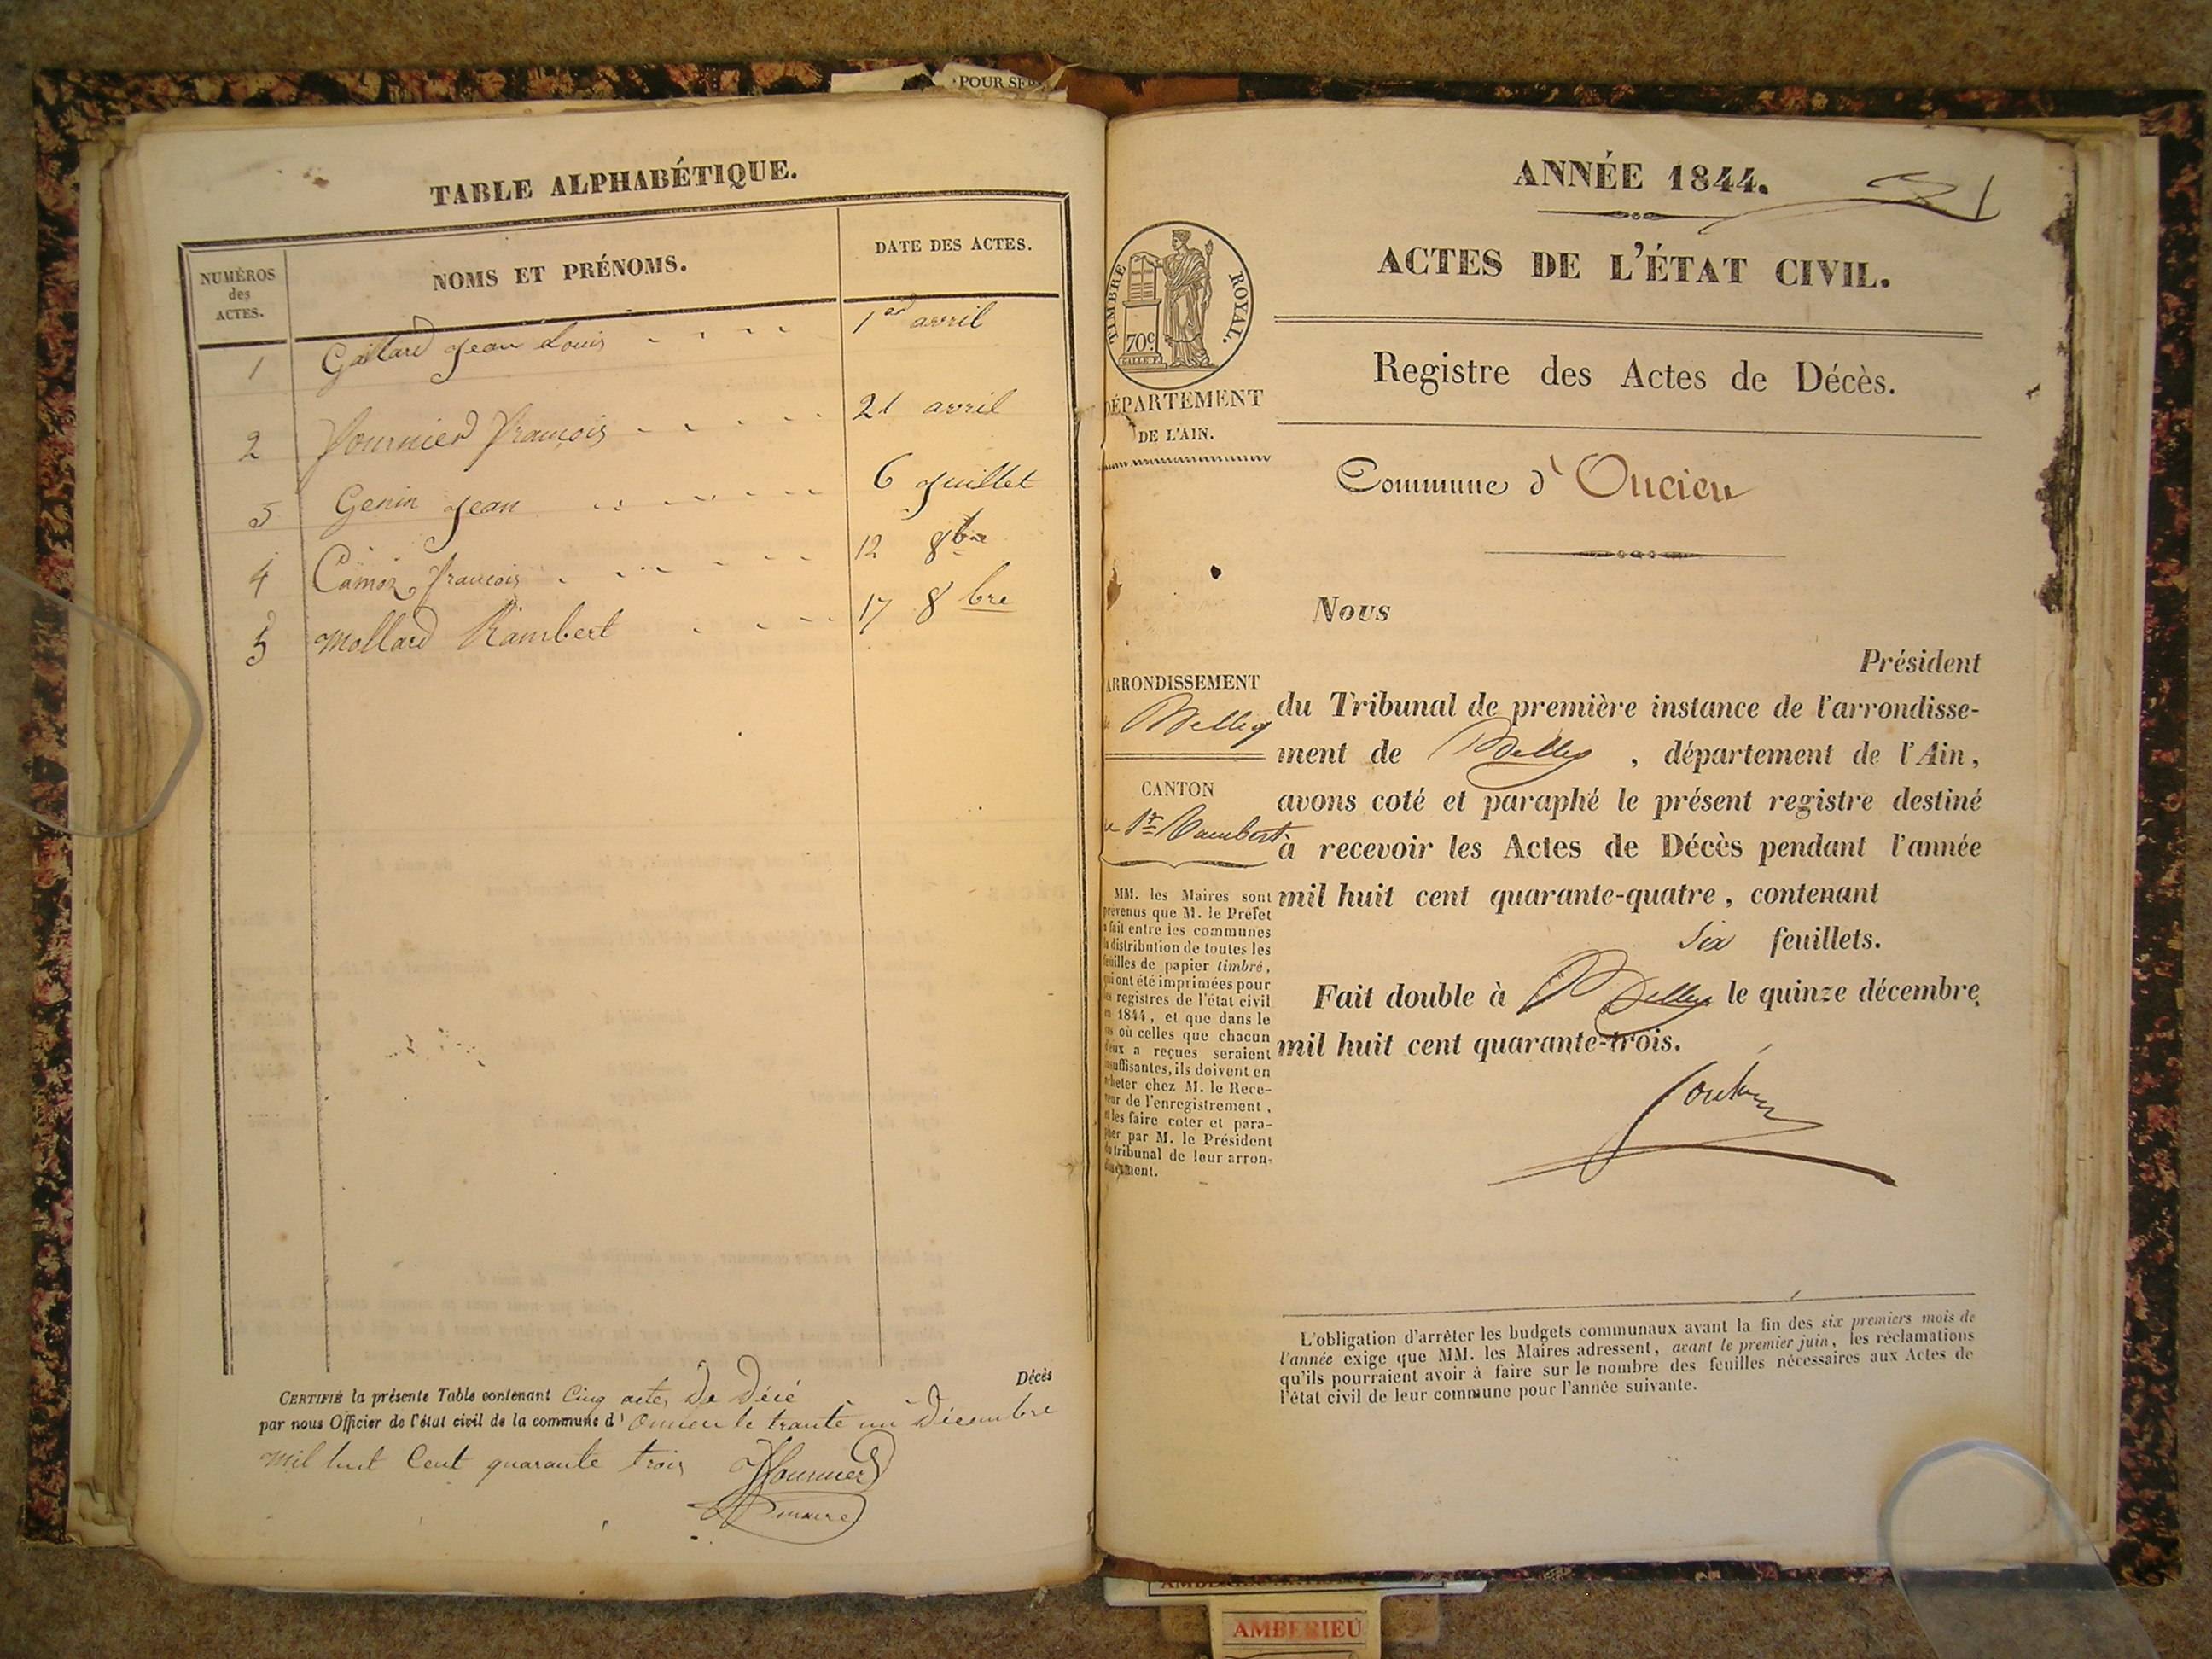 POUR SER
TABLE ALPHABÉTIQUE.
NUMÉROS
des
ACTES.
NOMS ET PRÉNOMS.
DATE DES ACTES.
1 Gallard Jean Louis 1er avril
2 Fournier François 21 avril
3 Genin Jean 6 Juillet
4 Camoz François 12 8bre
5 Mollard Rambert 17 8bre
Décès
CERTIFIÉ la présente Table contenant Cinq actes De Décé
par nous Officier de l'état civil de la commune d' Oncieu le trante un Décembre
mil huit Cent quarante trois
Fournier
maire
ANNÉE 1844.
ACTES DE L'ÉTAT CIVIL.
TIMBRE ROYAL.
70c.
DÉPARTEMENT
DE L'AIN.
Registre des Actes de Décès.
Commune d' Oncieu
ARRONDISSEMENT
de Belley
CANTON
de St Rambert
MM. les Maires sont
prévenus que M. le Préfet
a fait entre les communes
la distribution de toutes les
feuilles de papier timbré,
qui ont été imprimées pour
les registres de l'état civil
en 1844, et que dans le
cas où celles que chacun
d'eux a reçues seraient
insuffisantes, ils doivent en
acheter chez M. le Rece-
veur de l'enregistrement,
et les faire coter et para-
pher par M. le Président
du tribunal de leur arron-
dissement.
Nous
Président
du Tribunal de première instance de l'arrondisse-
ment de Belley, département de l'Ain,
avons coté et paraphé le présent registre destiné
à recevoir les Actes de Décès pendant l'année
mil huit cent quarante-quatre, contenant
six feuillets.
Fait double à Belley le quinze décembre
mil huit cent quarante-trois.
L'obligation d'arrêter les budgets communaux avant la fin des six premiers mois de
l'année exige que MM. les Maires adressent, avant le premier juin, les réclamations
qu'ils pourraient avoir à faire sur le nombre des feuilles nécessaires aux Actes de
l'état civil de leur commune pour l'année suivante.
AMBERIEU